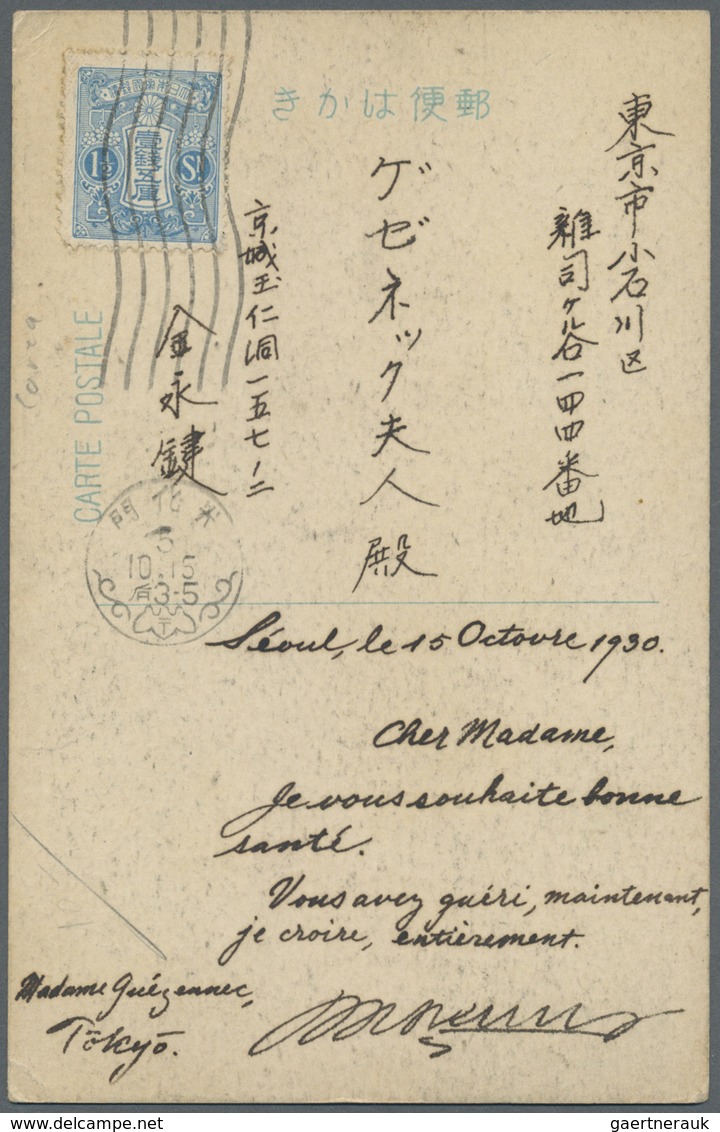 きかは便郵
東京市小石川区
雑司ケ谷一四四番地
ゲゼネック夫人殿
京城玉仁洞一五七ノ二
金永鍵
1½
壹錢五厘
Sn
CARTE POSTALE
Corea
門化光
5
10.15
后3-5
Séoul, le 15 Octovre 1930.
Cher Madame,
Je vous souhaite bonne
santé.
Vous avez guéri, maintenant,
je croire, entièrement.
Madame Guézennec,
Tōkyō.
gaertnerauk